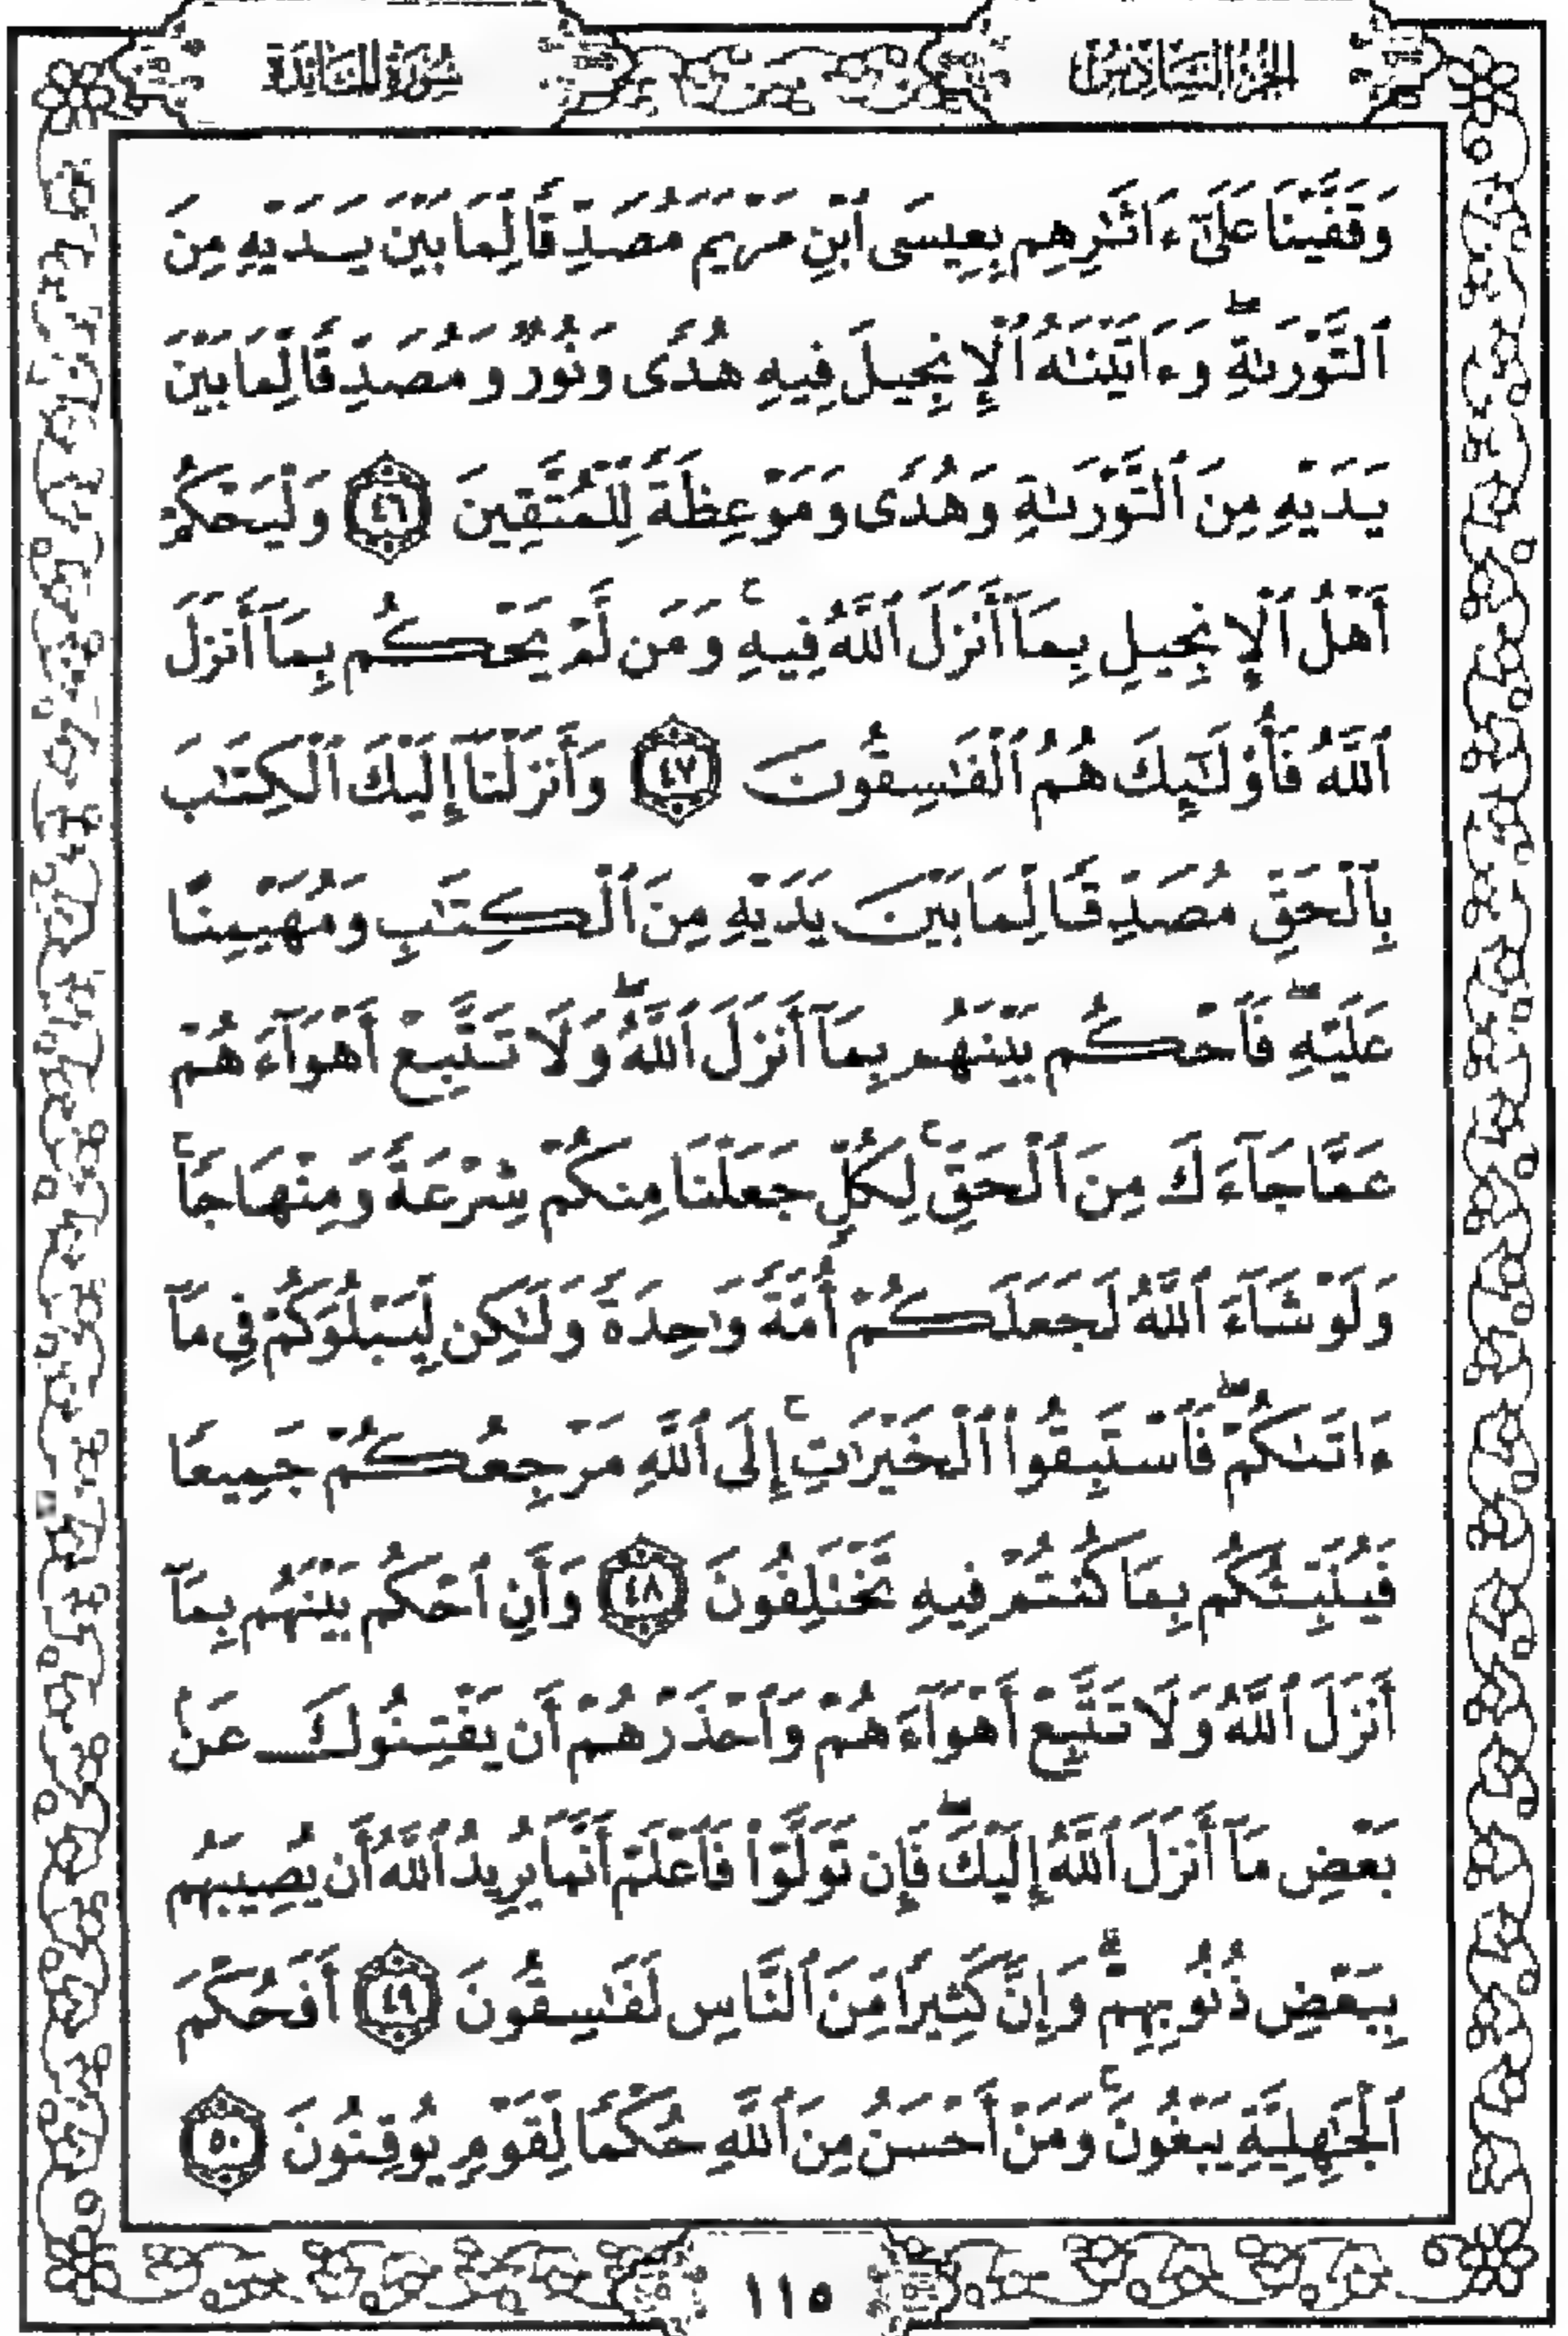 الجزء السادس
سورة المائدة
وَقَفَّيْنَا عَلَىٰٓ ءَاثَٰرِهِم بِعِيسَى ٱبْنِ مَرْيَمَ مُصَدِّقًا لِّمَا بَيْنَ يَدَيْهِ مِنَ
ٱلتَّوْرَىٰةِۖ وَءَاتَيْنَٰهُ ٱلْإِنجِيلَ فِيهِ هُدًى وَنُورٌ وَمُصَدِّقًا لِّمَا بَيْنَ
يَدَيْهِ مِنَ ٱلتَّوْرَىٰةِ وَهُدًى وَمَوْعِظَةً لِّلْمُتَّقِينَ ٤٦ وَلْيَحْكُمْ
أَهْلُ ٱلْإِنجِيلِ بِمَآ أَنزَلَ ٱللَّهُ فِيهِۚ وَمَن لَّمْ يَحْكُم بِمَآ أَنزَلَ
ٱللَّهُ فَأُو۟لَٰٓئِكَ هُمُ ٱلْفَٰسِقُونَ ٤٧ وَأَنزَلْنَآ إِلَيْكَ ٱلْكِتَٰبَ
بِٱلْحَقِّ مُصَدِّقًا لِّمَا بَيْنَ يَدَيْهِ مِنَ ٱلْكِتَٰبِ وَمُهَيْمِنًا
عَلَيْهِۖ فَٱحْكُم بَيْنَهُم بِمَآ أَنزَلَ ٱللَّهُۖ وَلَا تَتَّبِعْ أَهْوَآءَهُمْ
عَمَّا جَآءَكَ مِنَ ٱلْحَقِّۚ لِكُلٍّ جَعَلْنَا مِنكُمْ شِرْعَةً وَمِنْهَاجًاۚ
وَلَوْ شَآءَ ٱللَّهُ لَجَعَلَكُمْ أُمَّةً وَٰحِدَةً وَلَٰكِن لِّيَبْلُوَكُمْ فِى مَآ
ءَاتَىٰكُمْۖ فَٱسْتَبِقُوا۟ ٱلْخَيْرَٰتِۚ إِلَى ٱللَّهِ مَرْجِعُكُمْ جَمِيعًا
فَيُنَبِّئُكُم بِمَا كُنتُمْ فِيهِ تَخْتَلِفُونَ ٤٨ وَأَنِ ٱحْكُم بَيْنَهُم بِمَآ
أَنزَلَ ٱللَّهُ وَلَا تَتَّبِعْ أَهْوَآءَهُمْ وَٱحْذَرْهُمْ أَن يَفْتِنُوكَ عَنۢ
بَعْضِ مَآ أَنزَلَ ٱللَّهُ إِلَيْكَۖ فَإِن تَوَلَّوْا۟ فَٱعْلَمْ أَنَّمَا يُرِيدُ ٱللَّهُ أَن يُصِيبَهُم
بِبَعْضِ ذُنُوبِهِمْۗ وَإِنَّ كَثِيرًا مِّنَ ٱلنَّاسِ لَفَٰسِقُونَ ٤٩ أَفَحُكْمَ
ٱلْجَٰهِلِيَّةِ يَبْغُونَۚ وَمَنْ أَحْسَنُ مِنَ ٱللَّهِ حُكْمًا لِّقَوْمٍ يُوقِنُونَ ٥٠
١١٥